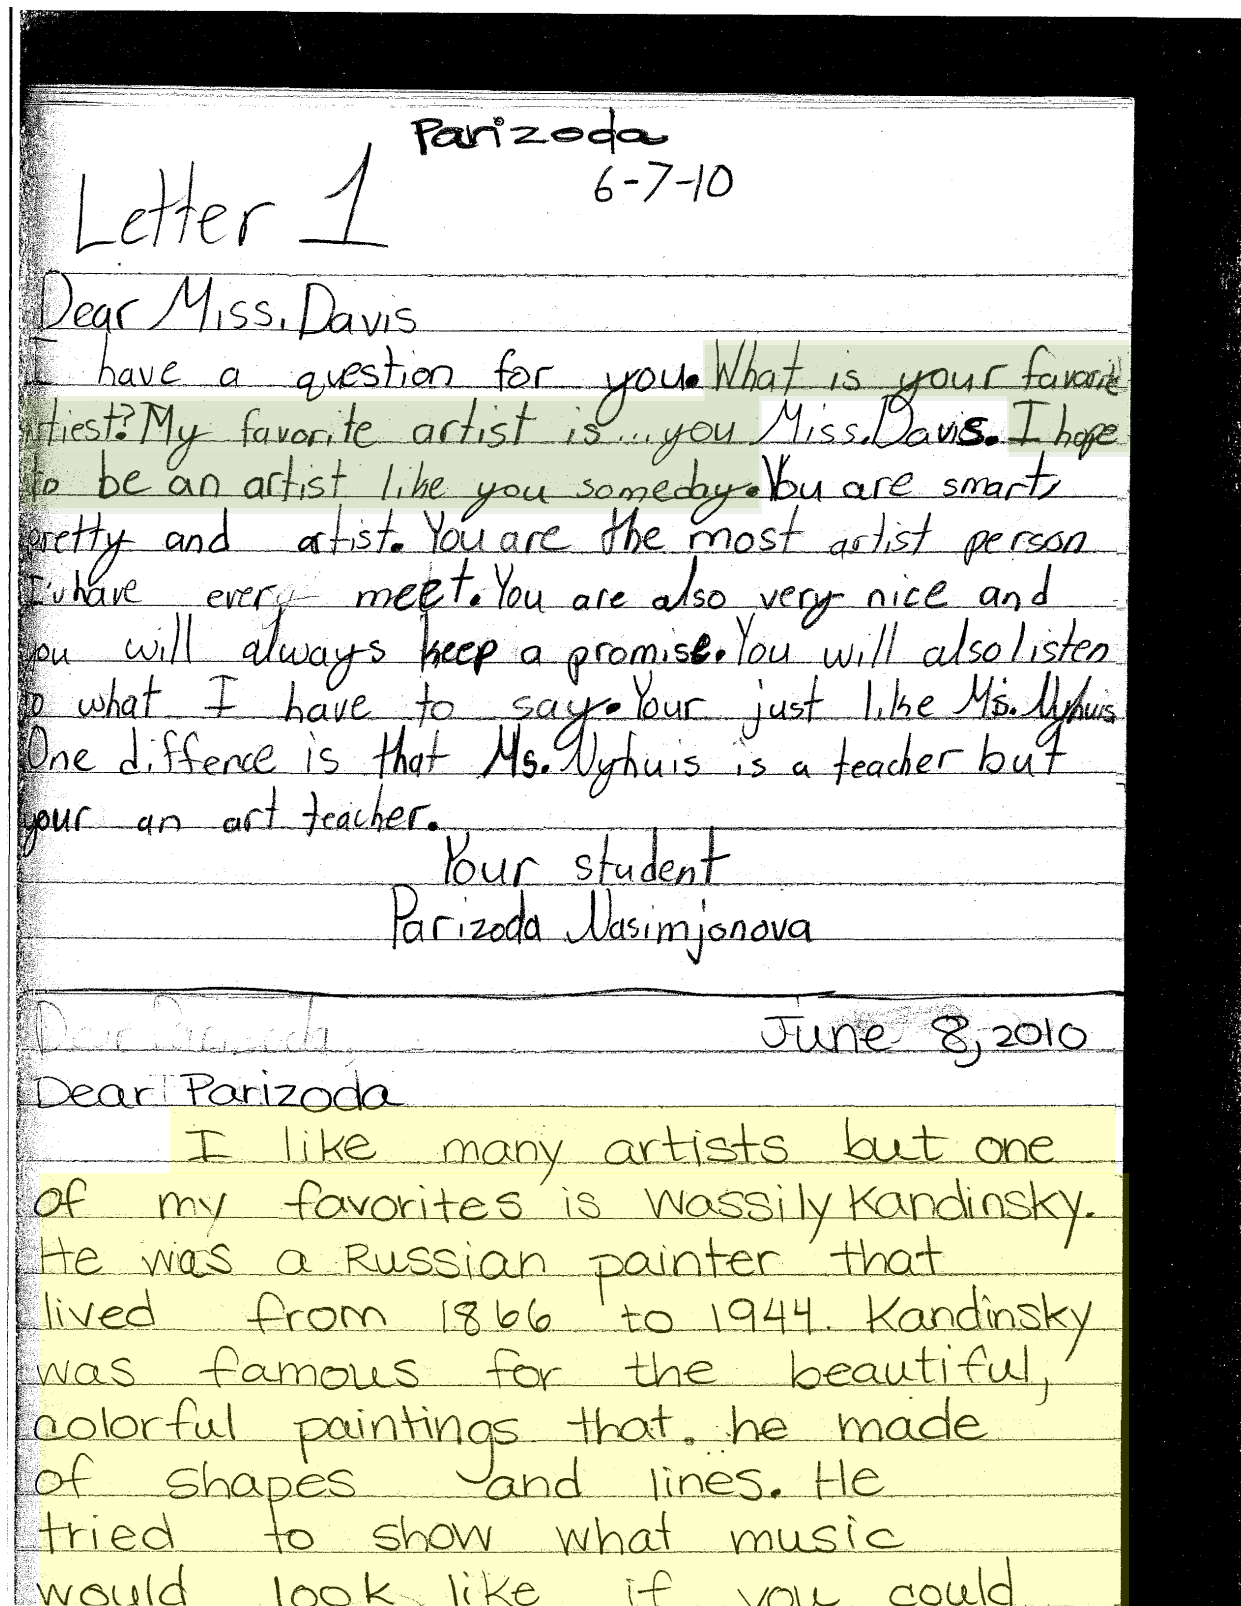 Parizoda
6-7-10
Letter 1
Dear Miss. Davis
I have a question for you. What is your favorite
tiest? My favorite artist is...you Miss. Davis. I hope
to be an artist like you someday. You are smart,
pretty and artist. You are the most artist person
I'v have every meet. You are also very nice and
you will always keep a promise. You will also listen
to what I have to say. Your just like Ms. Nyhuis
One diffence is that Ms. Nyhuis is a teacher but
your an art teacher.
Your student
Parizoda Nasimjonova
Dear Parizoda
June 8, 2010
Dear Parizoda
I like many artists but one
of my favorites is Wassily Kandinsky.
He was a Russian painter that
lived from 1866 to 1944. Kandinsky
was famous for the beautiful,
colorful paintings that he made
of shapes and lines. He
tried to show what music
would look like if you could